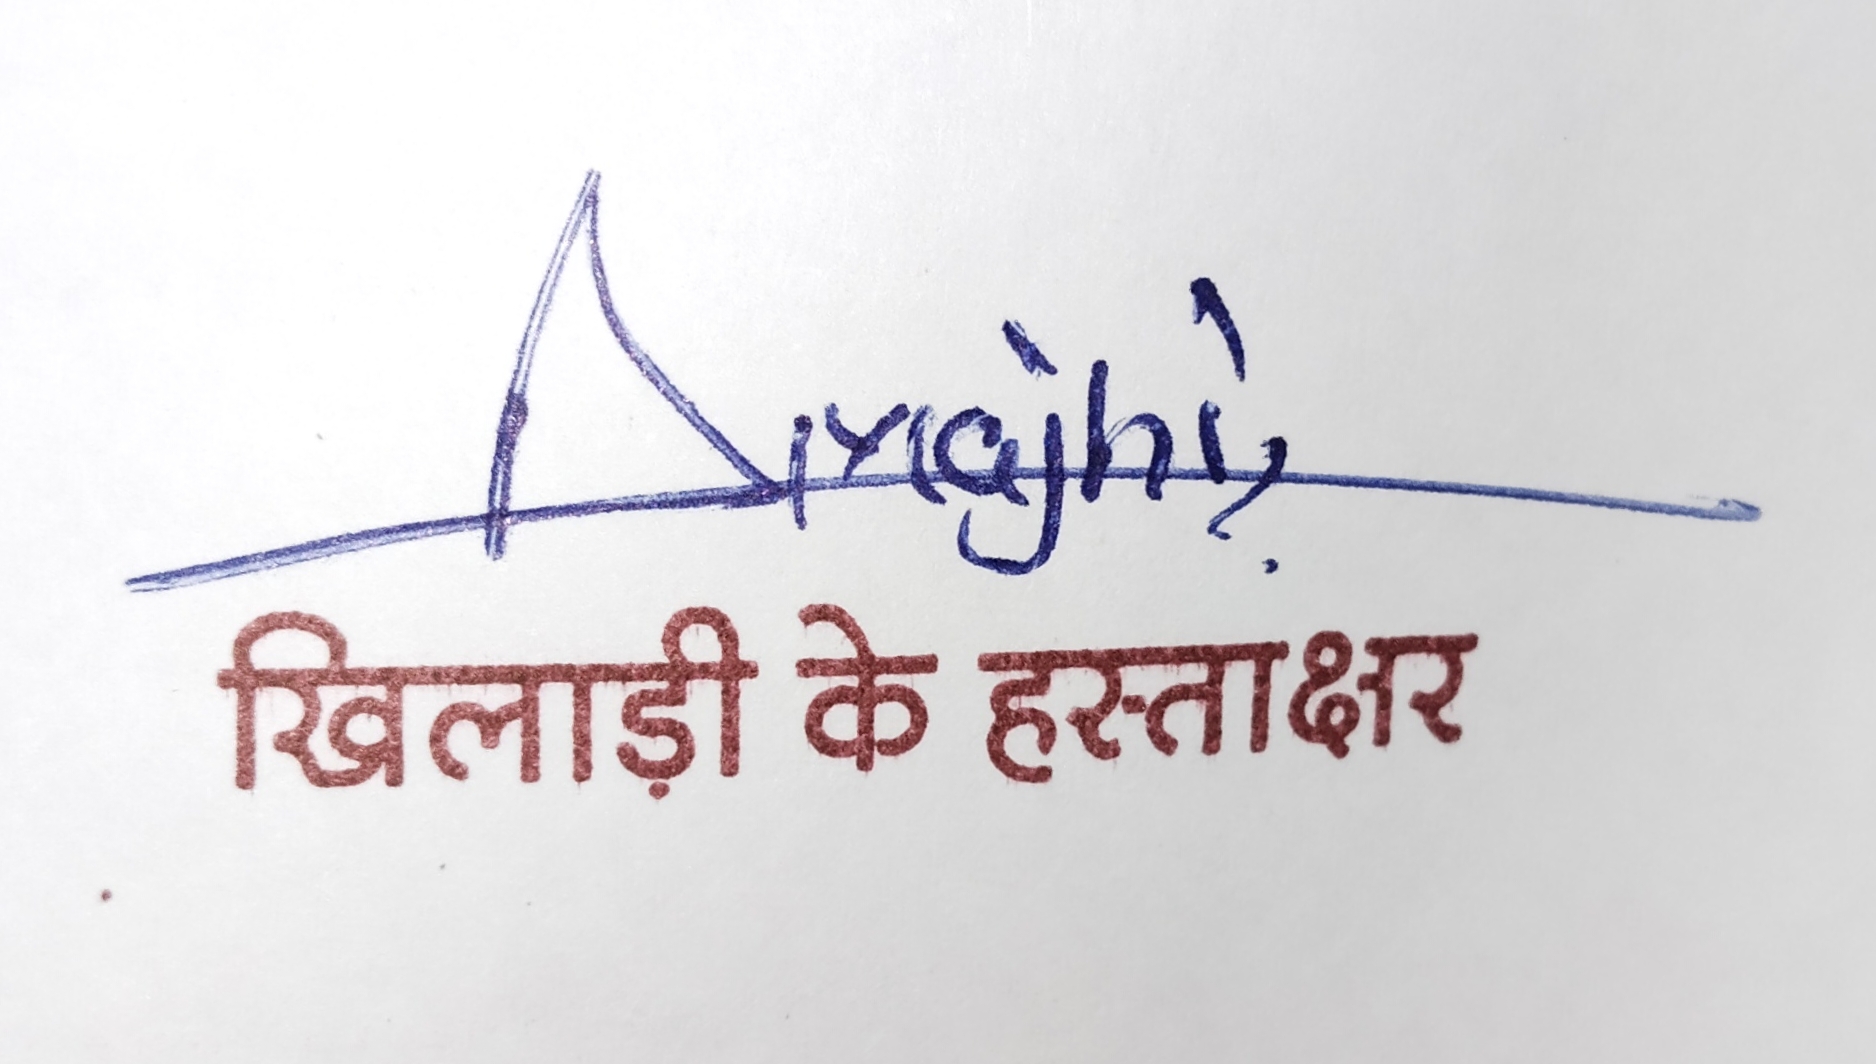 Amajhi
खिलाड़ी के हस्ताक्षर